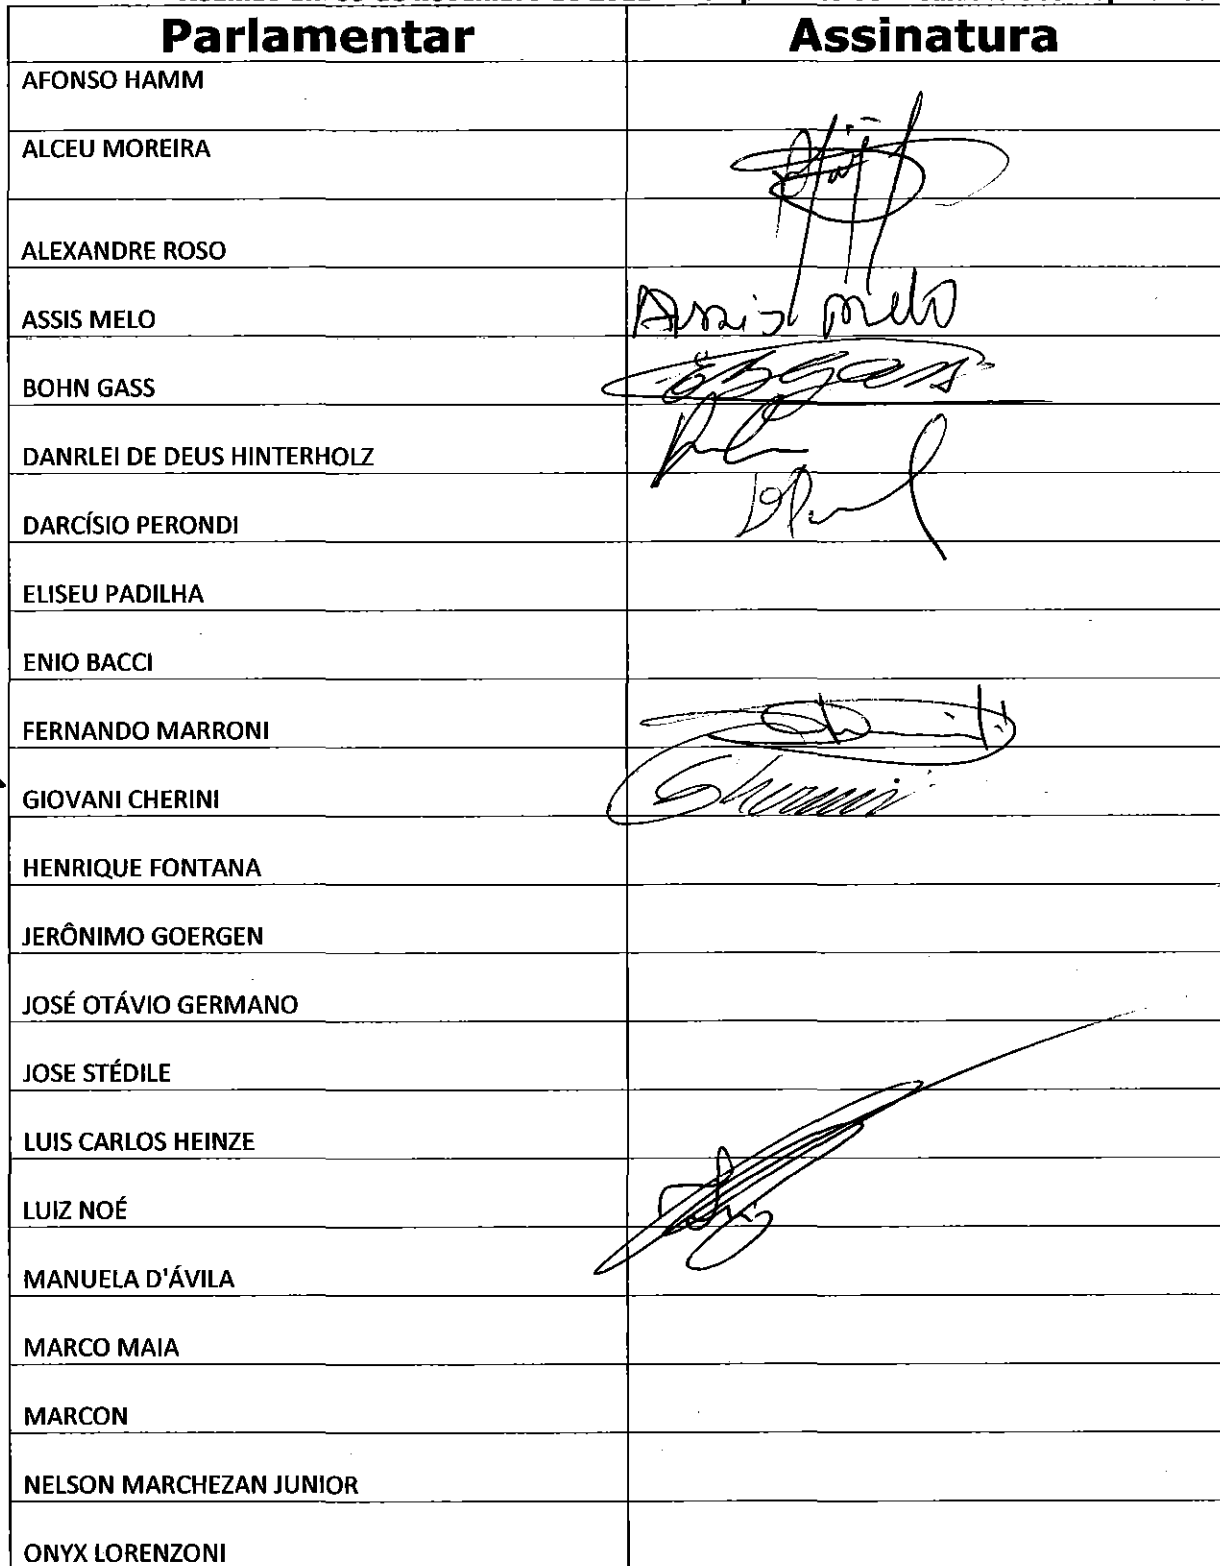 Parlamentar Assinatura
AFONSO HAMM
ALCEU MOREIRA
ALEXANDRE ROSO
ASSIS MELO Assis Melo
BOHN GASS EBGass
DANRLEI DE DEUS HINTERHOLZ
DARCÍSIO PERONDI
ELISEU PADILHA
ENIO BACCI
FERNANDO MARRONI
GIOVANI CHERINI GCherini
HENRIQUE FONTANA
JERÔNIMO GOERGEN
JOSÉ OTÁVIO GERMANO
JOSE STÉDILE
LUIS CARLOS HEINZE
LUIZ NOÉ
MANUELA D'ÁVILA
MARCO MAIA
MARCON
NELSON MARCHEZAN JUNIOR
ONYX LORENZONI